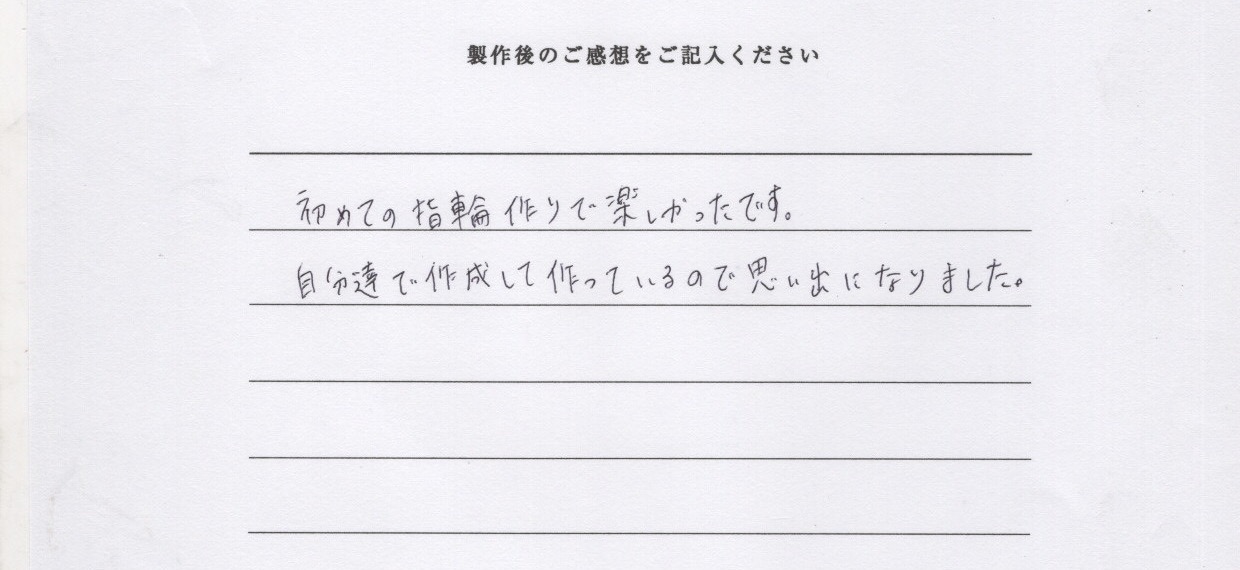 製作後のご感想をご記入ください
初めての指輪作りで楽しかったです。
自分達で作成して作っているので思い出になりました。